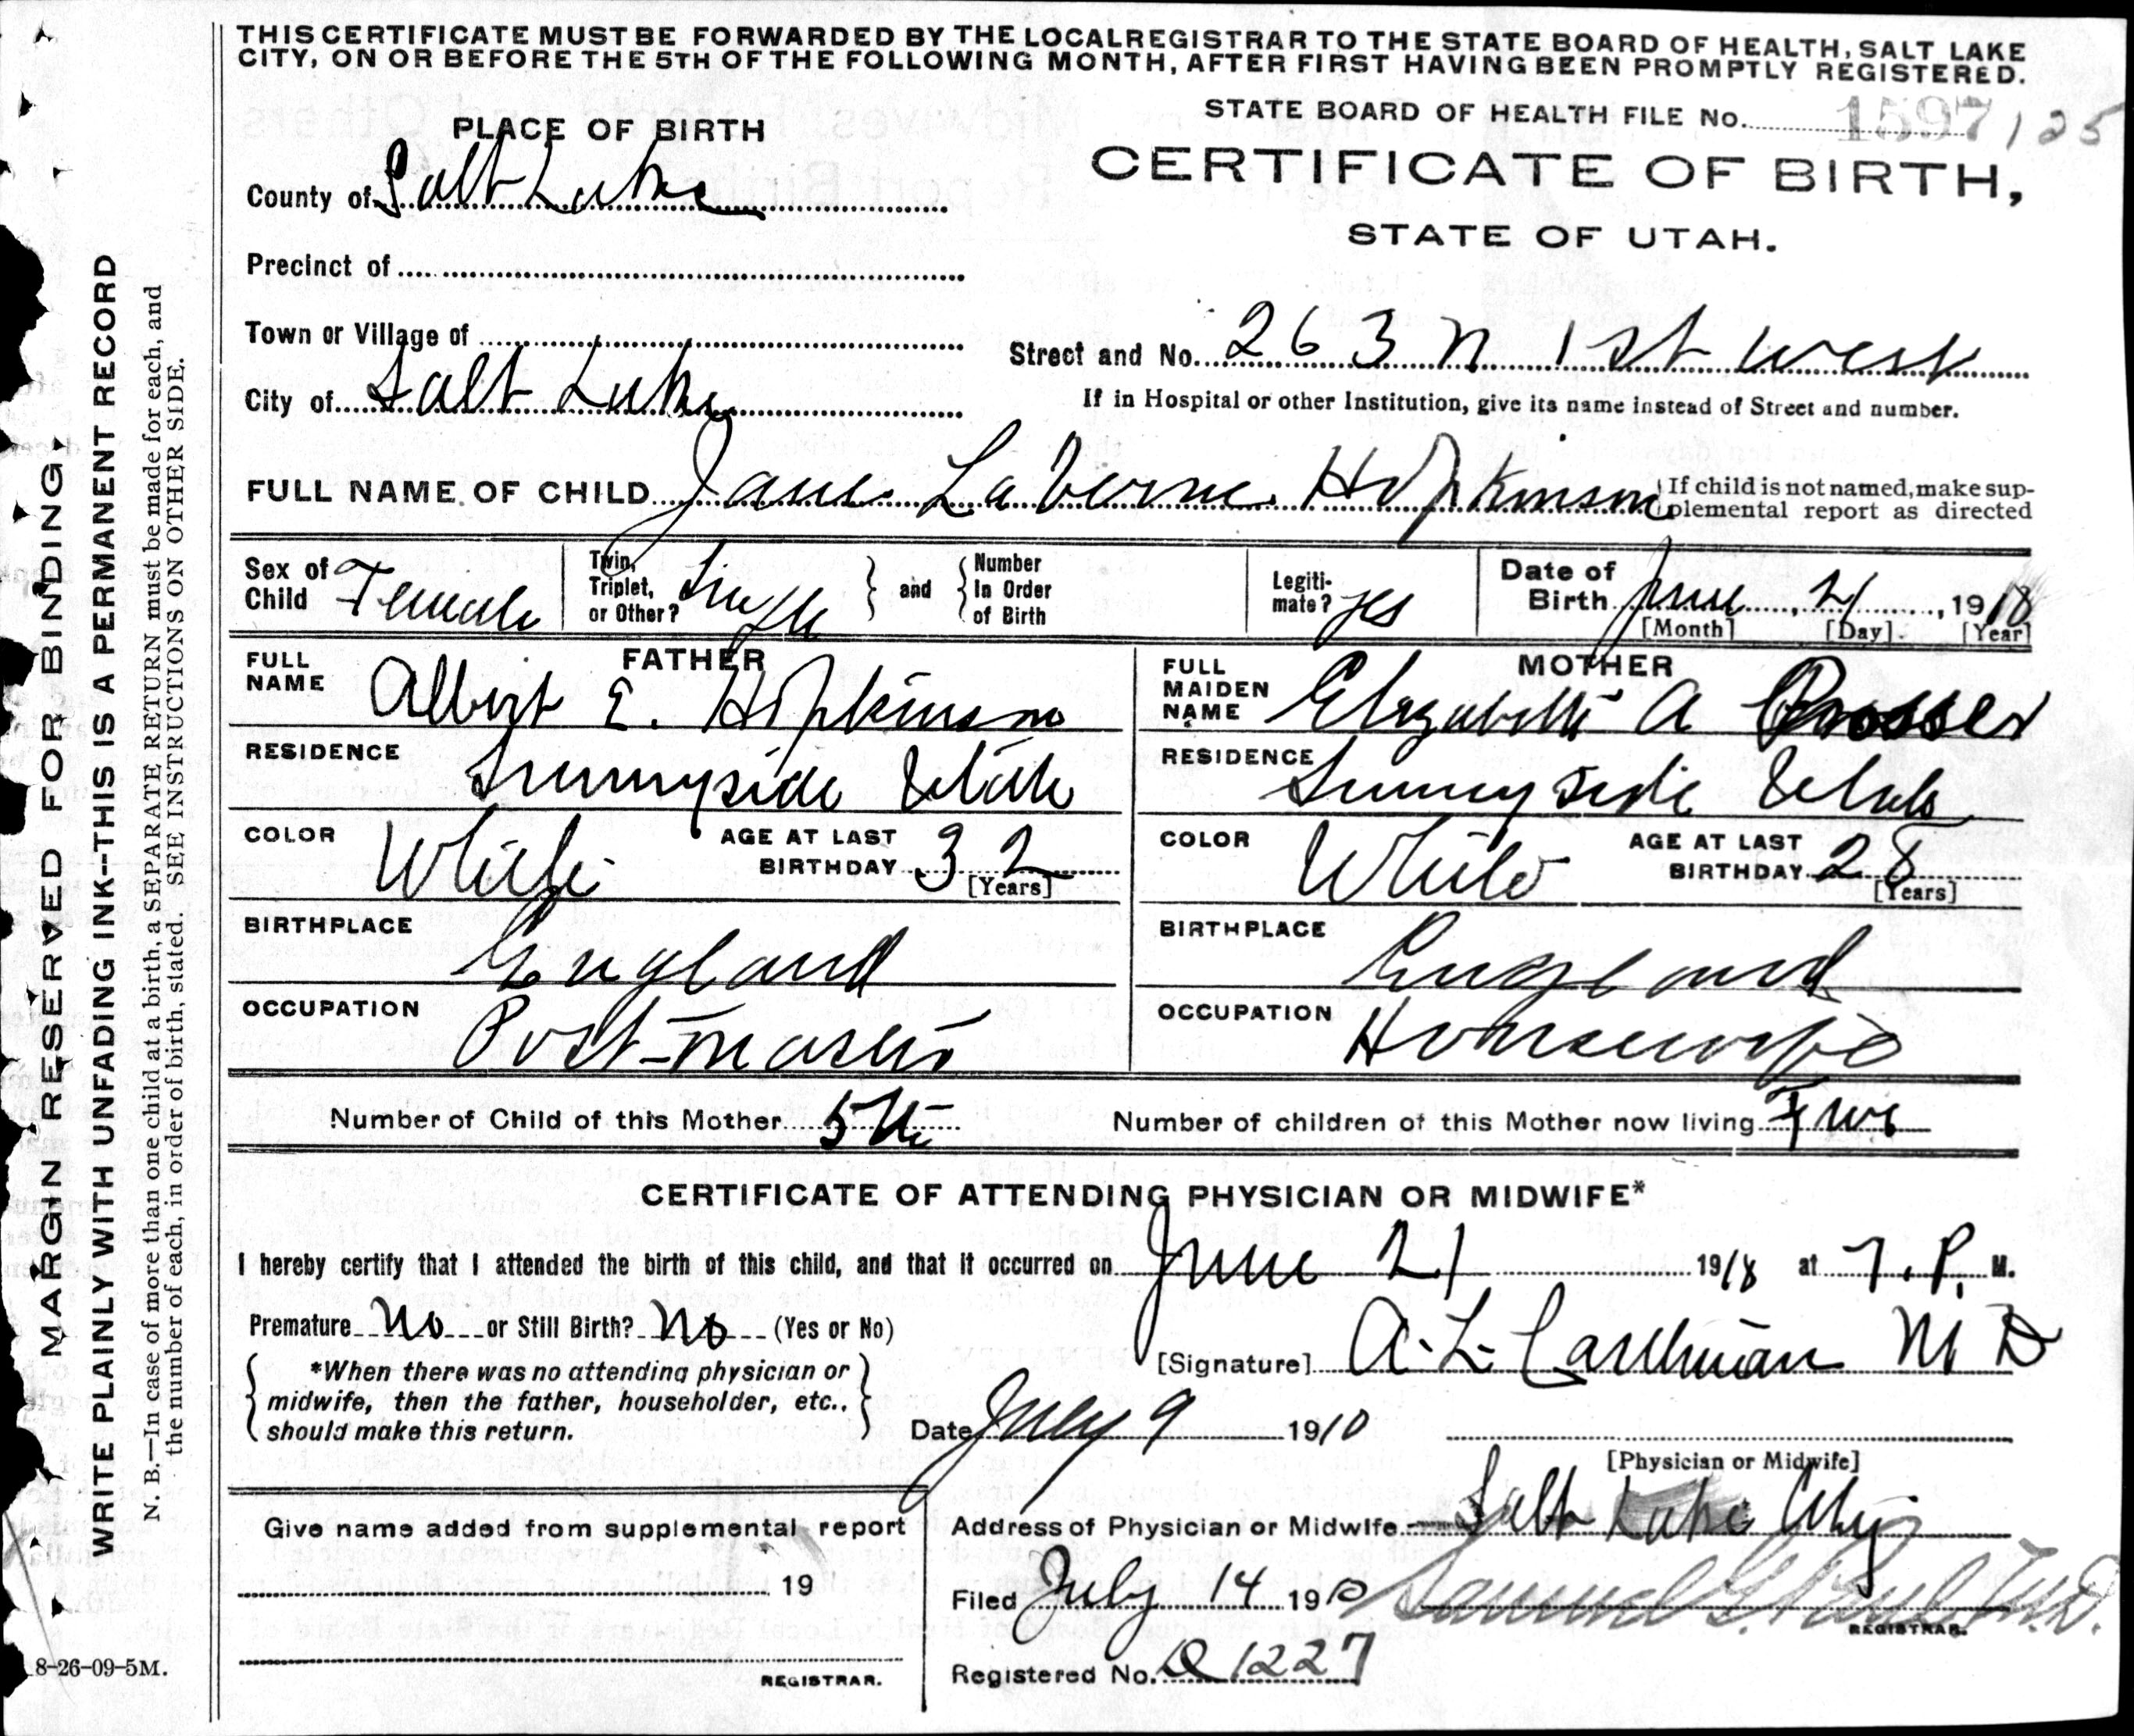 THIS CERTIFICATE MUST BE FORWARDED BY THE LOCAL REGISTRAR TO THE STATE BOARD OF HEALTH, SALT LAKE
CITY, ON OR BEFORE THE 5TH OF THE FOLLOWING MONTH, AFTER FIRST HAVING BEEN PROMPTLY REGISTERED.
STATE BOARD OF HEALTH FILE No. 1597 125
PLACE OF BIRTH
CERTIFICATE OF BIRTH,
STATE OF UTAH.
County of Salt Lake
Precinct of
Town or Village of
Street and No. 263 N 1st West
City of Salt Lake
If in Hospital or other Institution, give its name instead of Street and number.
FULL NAME OF CHILD Jane LaVerne Hopkinson
If child is not named, make sup-
plemental report as directed
Sex of Child Female
Twin, Triplet, or Other? Single
and
Number In Order of Birth
Legiti-mate? yes
Date of Birth June, 21, 1918
[Month] [Day] [Year]
FATHER
FULL NAME Albert E. Hopkinson
RESIDENCE Sunnyside Utah
COLOR White AGE AT LAST BIRTHDAY 32
[Years]
BIRTHPLACE England
OCCUPATION Post-master
MOTHER
FULL MAIDEN NAME Elizabeth A Prosser
RESIDENCE Sunnyside Utah
COLOR White AGE AT LAST BIRTHDAY 28
[Years]
BIRTHPLACE England
OCCUPATION Housewife
Number of Child of this Mother 5th
Number of children of this Mother now living Five
CERTIFICATE OF ATTENDING PHYSICIAN OR MIDWIFE*
I hereby certify that I attended the birth of this child, and that it occurred on June 21 1918 at 7.P. M.
Premature No or Still Birth? No (Yes or No)
*When there was no attending physician or
midwife, then the father, householder, etc.,
should make this return.
[Signature] A. L. M D
Date July 9 1910
[Physician or Midwife]
Give name added from supplemental report
19
REGISTRAR.
Address of Physician or Midwife Salt Lake City
Filed July 14 1910 Samuel G. Paul M.D.
REGISTRAR.
Registered No. 1227
MARGIN RESERVED FOR BINDING.
WRITE PLAINLY WITH UNFADING INK--THIS IS A PERMANENT RECORD
N. B.—In case of more than one child at a birth, a SEPARATE RETURN must be made for each, and
the number of each, in order of birth, stated. SEE INSTRUCTIONS ON OTHER SIDE.
8-26-09-5M.